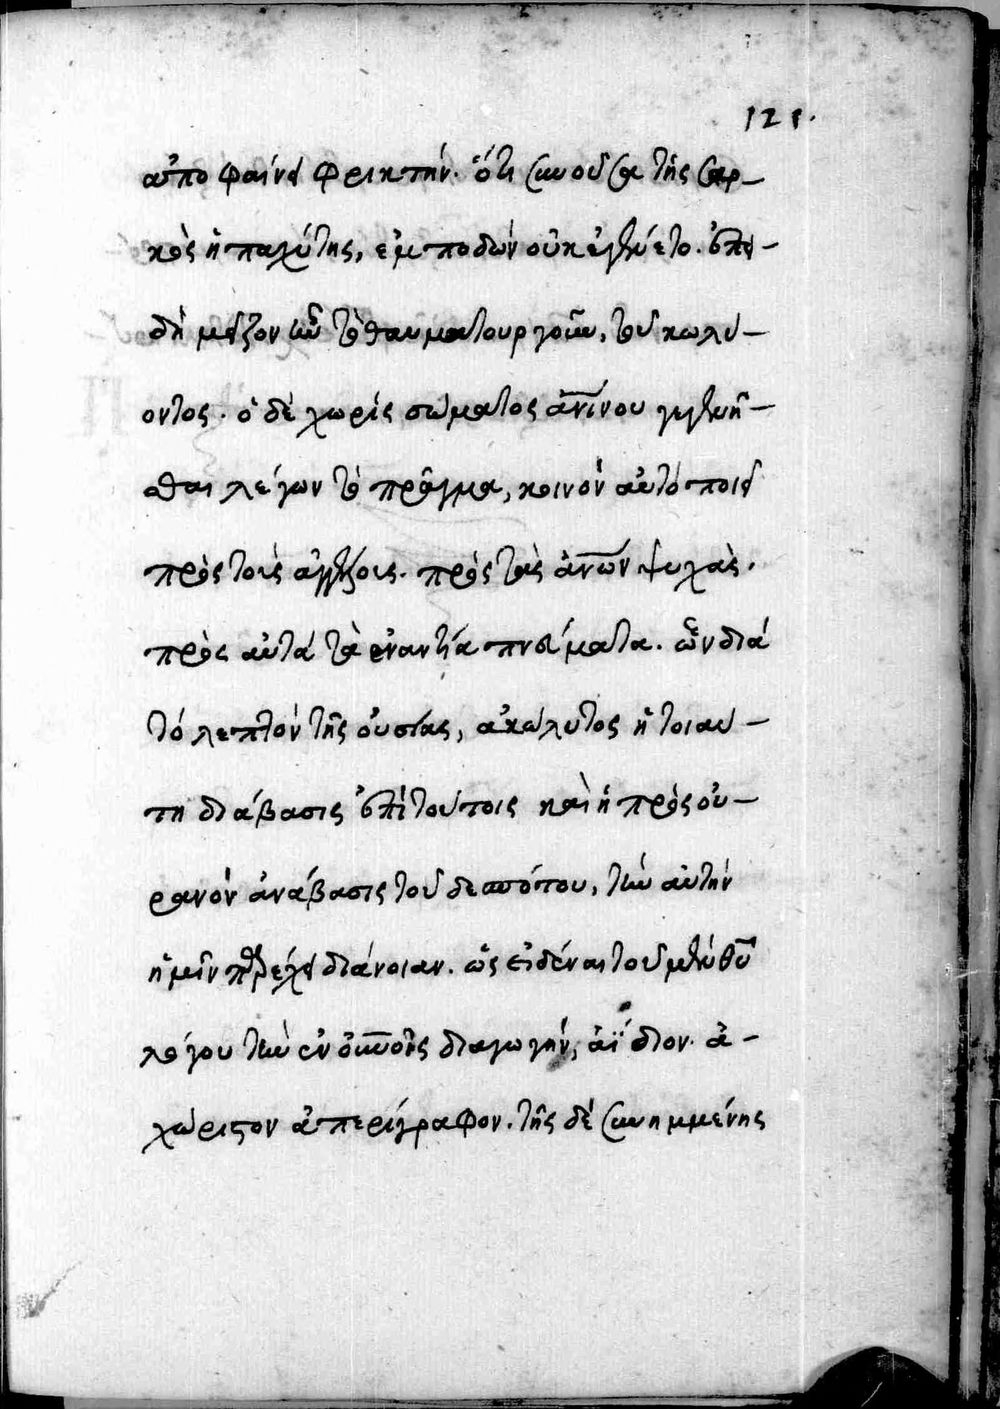 121.
ἀποφαίνει φρικτήν. ὅτι συνοῦσα τῆς σαρ-
κὸς ἡ παχύτης, ἐμποδὼν οὐκ ἐγένετο. ἐπει-
δὴ μεῖζον ἦν τὸ θαυματουργοῦν, τοῦ κωλύ-
οντος. ὁ δὲ χωρὶς σώματος ἀνίνου γεγενῆ-
σθαι λέγων τὸ πρᾶγμα, κοινὸν αὐτὸ ποιεῖ
πρὸς τοὺς ἀγγέλους. πρὸς τὰς ἀνων ψυχὰς.
πρὸς αὐτὰ τὰ ἐναντία πνεύματα. ὧν διὰ
τὸ λεπτὸν τῆς οὐσίας, ἀκώλυτος ἡ τοιαύ-
τη διάβασις ἐπὶ τούτοις καὶ ἡ πρὸς οὐ-
ρανὸν ἀνάβασις τοῦ δεσπότου, τὴν αὐτὴν
ἡμῖν παρέχει διάνοιαν. ὡς εἰδέναι τοῦ μὲν θυ
λόγου τὴν ἐν οὐνοῖς διαγωγὴν, ἀΐδιον. ἀ-
χώριστον ἀπερίγραφον. τῆς δὲ συνημμένης